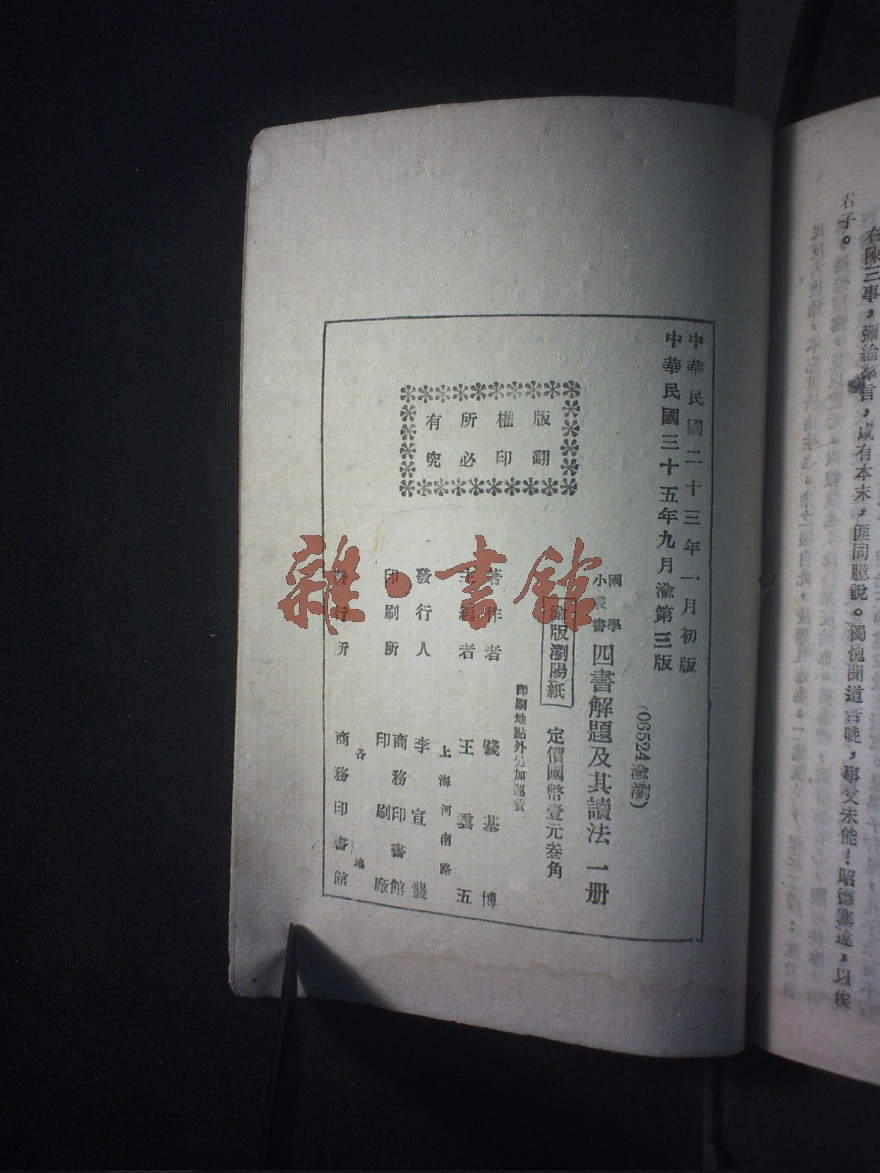 君子。
右陳三事，彌綸羣言，咸有本末，匪同臆說。獨愧聞道苦晚，事父未能！昭德塞違，以俟
中華民國二十三年一月初版
中華民國三十五年九月渝第三版
(06524渝瀏)
國學
小叢書
四書解題及其讀法 一册
渝版瀏陽紙
定價國幣壹元叁角
印刷地點外另加運費
版權所有
翻印必究
著作者 錢基博
主編者 王雲五
上海河南路
發行人 李宣龔
印刷所 商務印書館
印刷廠
各地
發行所 商務印書館
雜·書館